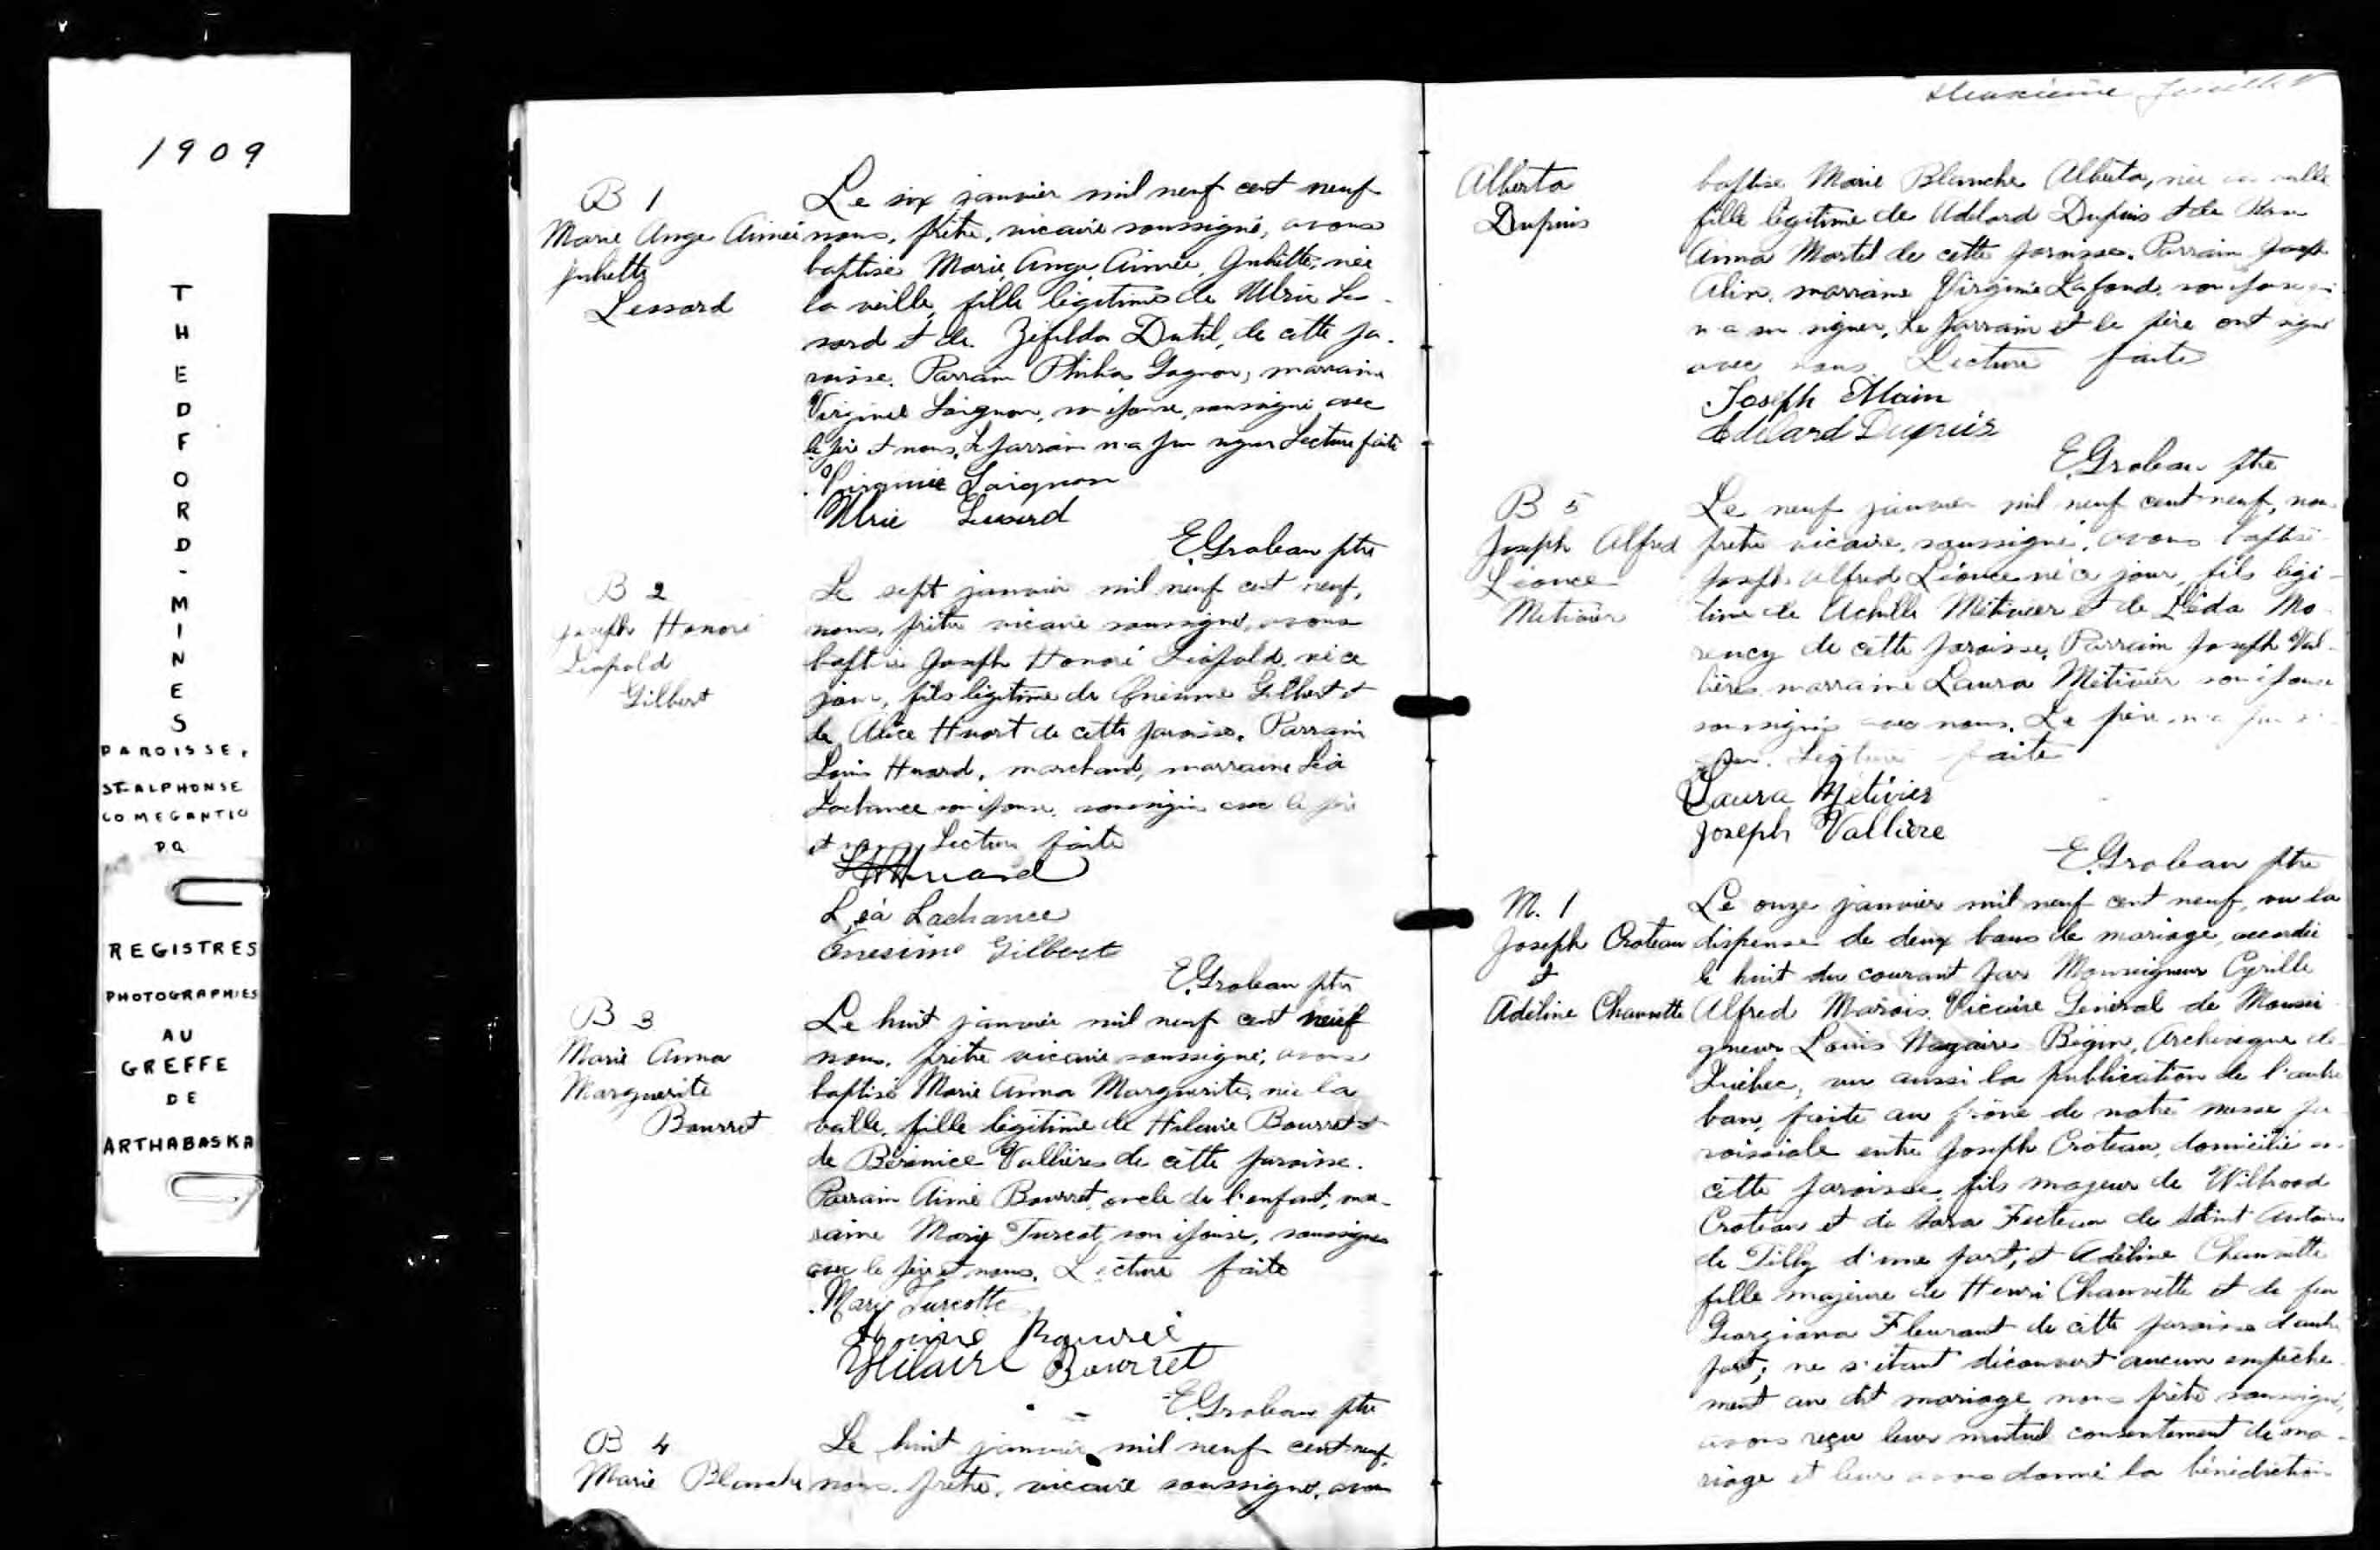 1909
THEDFORD-MINES
PAROISSE,
ST-ALPHONSE
CO MEGANTIC
PQ
REGISTRES
PHOTOGRAPHIES
AU
GREFFE
DE
ARTHABASKA
B 1
Marie Ange Aimée
Juliette
Lessard
Le six janvier mil neuf cent neuf
nous, prêtre, vicaire soussigné, avons
baptisé Marie, Ange, Aimée, Juliette, née
la veille, fille légitime de Ulric Les-
sard et de Zéfilda Dutil, de cette pa-
roisse. Parrain Philias Gagnon, marraine
Virginie Loignon, son épouse, soussigné avec
le père et nous. Le parrain n'a pu signer Lecture faite
Virginie Loignon
Ulric Lessard
E. Groleau ptre
B 2
Joseph Honoré
Léopold
Gilbert
Le sept janvier mil neuf cent neuf,
nous, prêtre vicaire soussigné, avons
baptisé Joseph Honoré Léopold, né ce
jour, fils légitime de Onésime Gilbert et
de Alice Huart de cette paroisse. Parrain
Louis Huard, marchand, marraine Léa
Lachance son épouse, soussignés avec le père
et nous Lecture faite
Huard
Léa Lachance
Onesime Gilbert
E. Groleau ptre
B 3
Marie Anna
Marguerite
Bourret
Le huit janvier mil neuf cent neuf
nous, prêtre vicaire soussigné, avons
baptisé Marie Anna Marguerite, née la
veille, fille légitime de Hilaire Bourret et
de Bérénice Vallières de cette paroisse.
Parrain Aimé Bourret, oncle de l'enfant, mar-
raine Mary Turcot, son épouse, soussignés
avec le père et nous. Lecture faite
Mary Turcotte
Aimé Bourré
Hilaire Bourret
E. Groleau ptre
B 4
Marie Blanche
Le huit janvier mil neuf cent neuf,
nous, prêtre, vicaire soussigné, avons
deuxième feuillet
Alberta
Dupuis
baptisé Marie Blanche Alberta, née la veille
fille légitime de Adélard Dupuis et de
Anna Martel de cette paroisse. Parrain Joseph
Alin, marraine Virginie Lafond, son épouse qui
n'a su signer. Le parrain et le père ont signé
avec nous Lecture faite
Joseph Alain
Adelard Dupuis
E. Groleau ptre
B 5
Joseph Alfred
Léonce
Metivier
Le neuf janvier mil neuf cent neuf, nous
prêtre vicaire, soussigné, avons baptisé
Joseph Alfred Léonce né ce jour, fils légi-
time de Achille Métivier et de Léda Mo-
rency de cette paroisse. Parrain Joseph Val-
lières, marraine Laura Métivier son épouse
soussignés avec nous. Le père n'a pu si-
gner. Lecture faite
Laura Métivier
Joseph Vallière
E. Groleau ptre
M. 1
Joseph Croteau
et
Adéline Chauvette
Le onze janvier mil neuf cent neuf, vu la
dispense de deux bans de mariage, accordée
le huit du courant par Monseigneur Cyrille
Alfred Marois Vicaire Général de Monsei-
gneur Louis Nazaire Bégin, Archevêque de
Québec, vu aussi la publication de l'autre
ban, faite au prône de notre messe pa-
roissiale entre Joseph Croteau, domicilié en
cette paroisse, fils majeur de Wilbrood
Croteau et de Sara Fecteau de Saint Antoine
de Tilly d'une part, et Adéline Chauvette
fille majeure de Henri Chauvette et de feu
Georgiana Fleurant de cette paroisse d'autre
part; ne s'étant découvert aucun empêche-
ment au dit mariage, nous prêtre soussigné,
avons reçu leur mutuel consentement de ma-
riage et leur avons donné la bénédiction